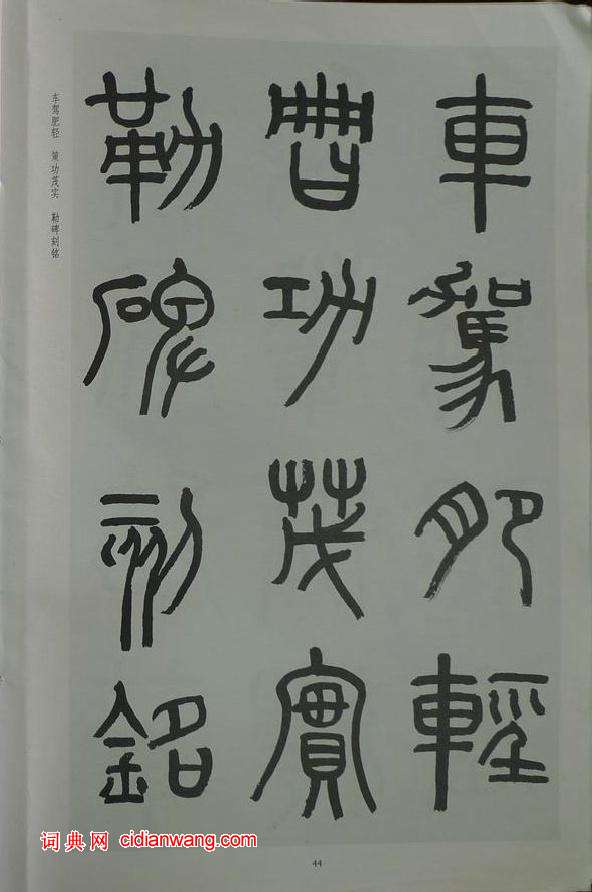 車駕肥輕
功茂實
勒碑刻銘
车驾肥轻 策功茂实 勒碑刻铭
44
词典网 cidianwang.com